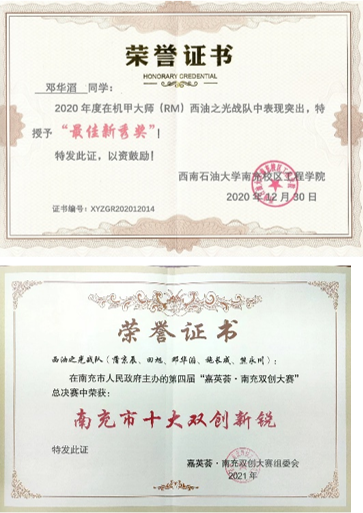 荣誉证书
HONORARY CREDENTIAL
邓华滔 同学：
2020 年度在机甲大师（RM）西油之光战队中表现突出，特
授予“最佳新秀奖”！
特发此证，以资鼓励！
西南石油大学南充校区工程学院
2020 年 12 月 30 日
证书编号：XYZGR202012014
荣誉证书
西油之光战队（蒲京辰、田旭、邓华滔、施长成、熊永川）：
在南充市人民政府主办的第四届“嘉英荟·南充双创大赛”
总决赛中荣获：
南充市十大双创新锐
特发此证
嘉英荟·南充双创大赛组委会
2021 年